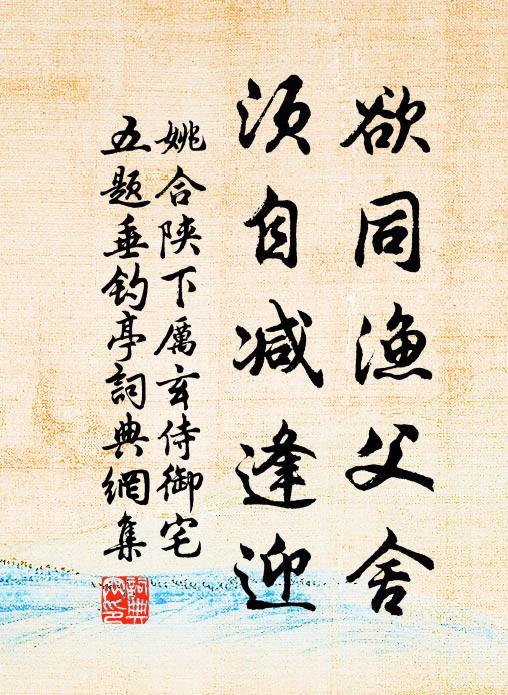 欲同渔父舍
须自减逢迎
姚合陕下厲玄侍御宅
五题垂钓亭詞典網集